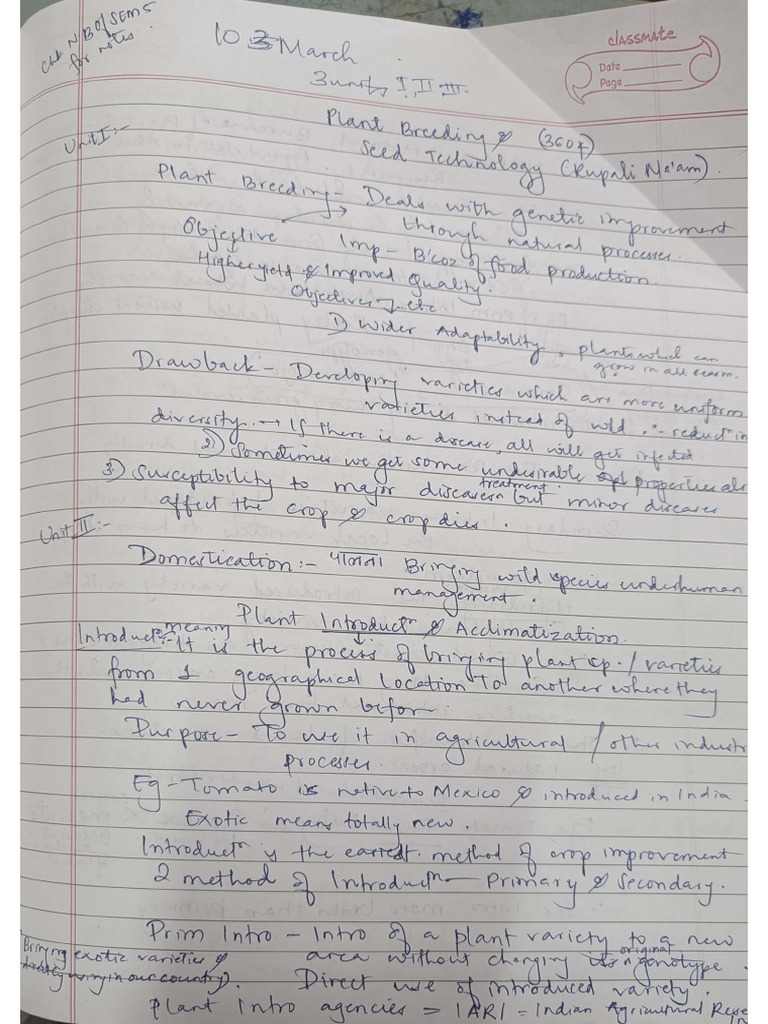 Chk N/BO/SEM5
for notes.
10 3 March
classmate
Date
Page
3 units, I, II, III.
Plant Breeding & (360x)
Unit I :-
Seed Technology (Rupali Ma'am).
Plant Breeding - Deals with genetic improvement
through natural processes.
Objective Imp - B'coz of food production.
Higher yield & Improved Quality.
Objectives - etc
1) Wider Adaptability, plants which can
grow in all season.
Drawback - Developing varieties which are more uniform
varieties instead of wild ∴ reduct in
diversity. → If there is a disease, all will get infected
2) Sometimes we get some undesirable properties als
3) Susceptibility to major diseases treatment but minor diseases
affect the crop & crop dies.
Unit II :-
Domestication :- पालना Bringing wild species under human
management.
Plant Introductⁿ & Acclimatization.
Introductⁿ meaning :- It is the process of bringing plant sp. / varieties
from 1 geographical location to another where they
had never grown befor.
Purpose - To use it in agricultural / other industr
processes.
Eg - Tomato is native to Mexico & introduced in India.
Exotic means totally new.
Introductⁿ is the earliest method of crop improvement
2 method of Introductⁿ - Primary & Secondary.
Prim Intro - Intro of a plant variety to a new
area without changing its original genotype.
Bringing exotic varieties &
directly using in our country). Direct use of introduced variety.
Plant Intro agencies = IARI = Indian Agricultural Rese